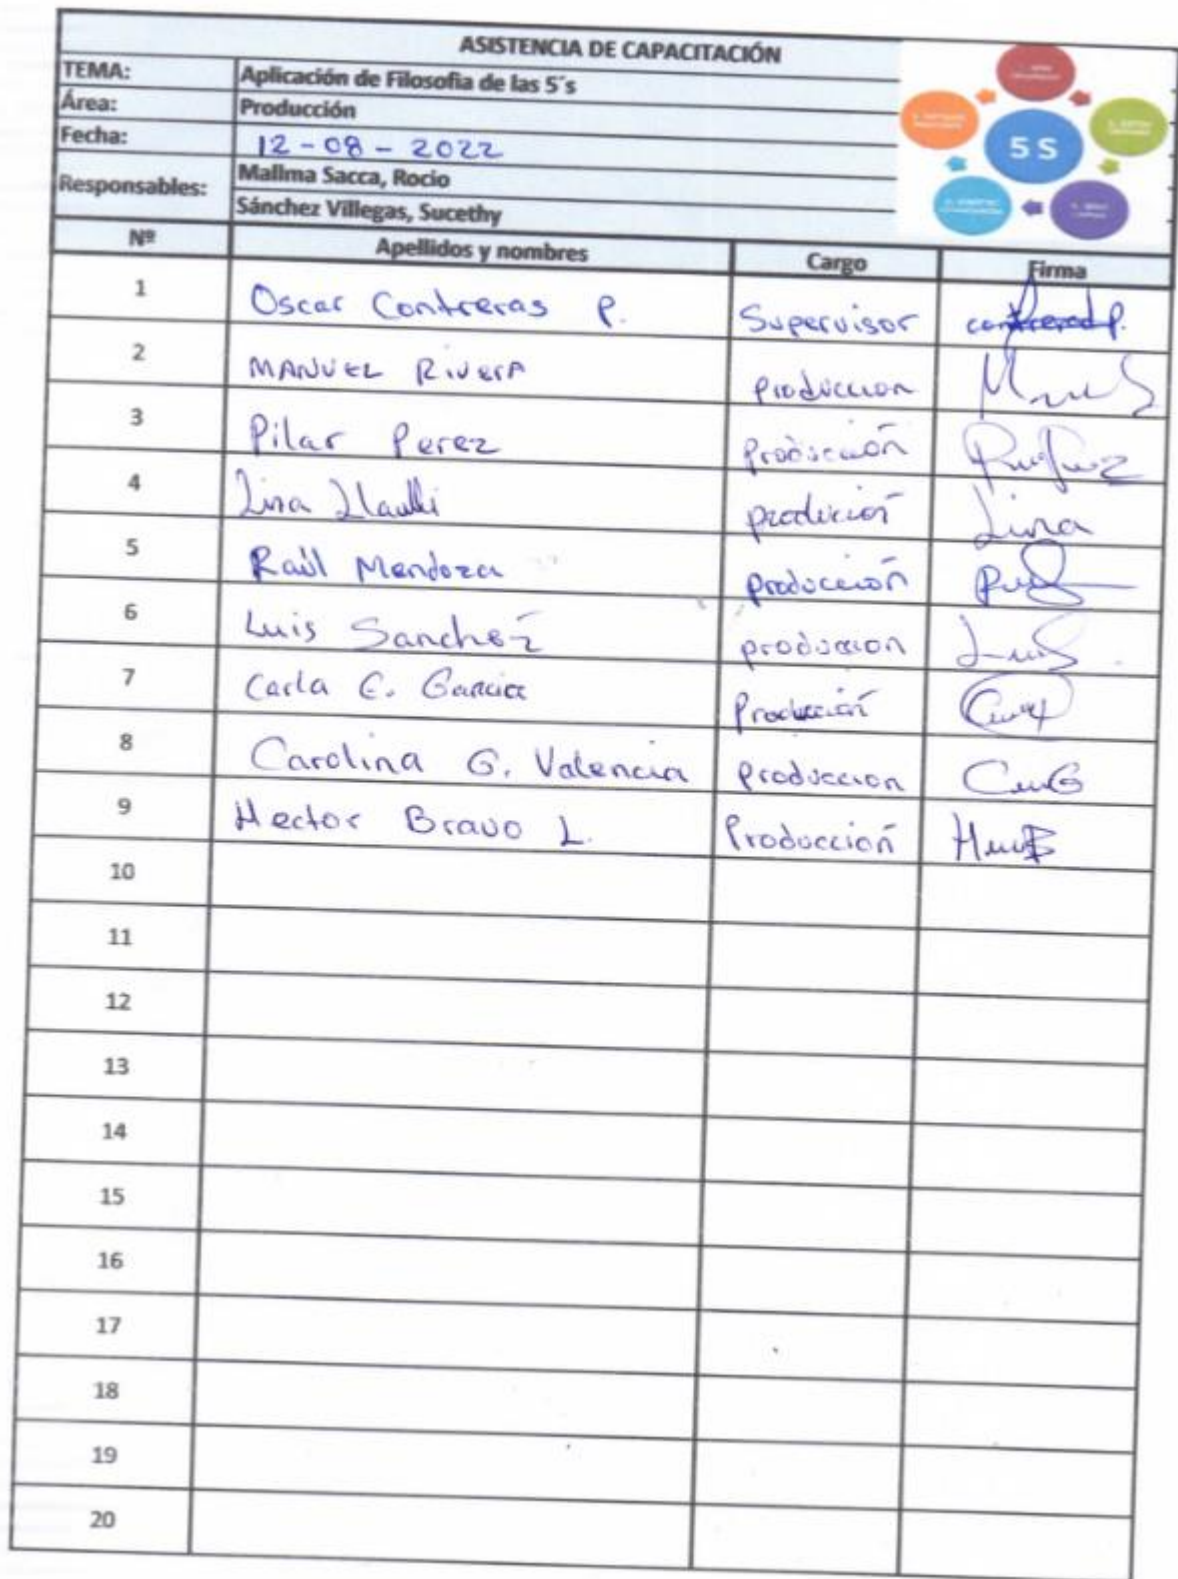 ASISTENCIA DE CAPACITACIÓN
TEMA: Aplicación de Filosofia de las 5´s
Área: Producción
Fecha: 12-08-2022
Responsables: Mallma Sacca, Rocio
Sánchez Villegas, Sucethy
5 S
Nº Apellidos y nombres Cargo Firma
1 Oscar Contreras P. Supervisor
2 MANUEL RIVERA Produccion
3 Pilar Perez Producción
4 Lina produción Lina
5 Raúl Mendoza producción
6 Luis Sanchez produccion
7 Carla C. Garcia Producción
8 Carolina G. Valencia produccion
9 Hector Bravo L. Producción
10
11
12
13
14
15
16
17
18
19
20